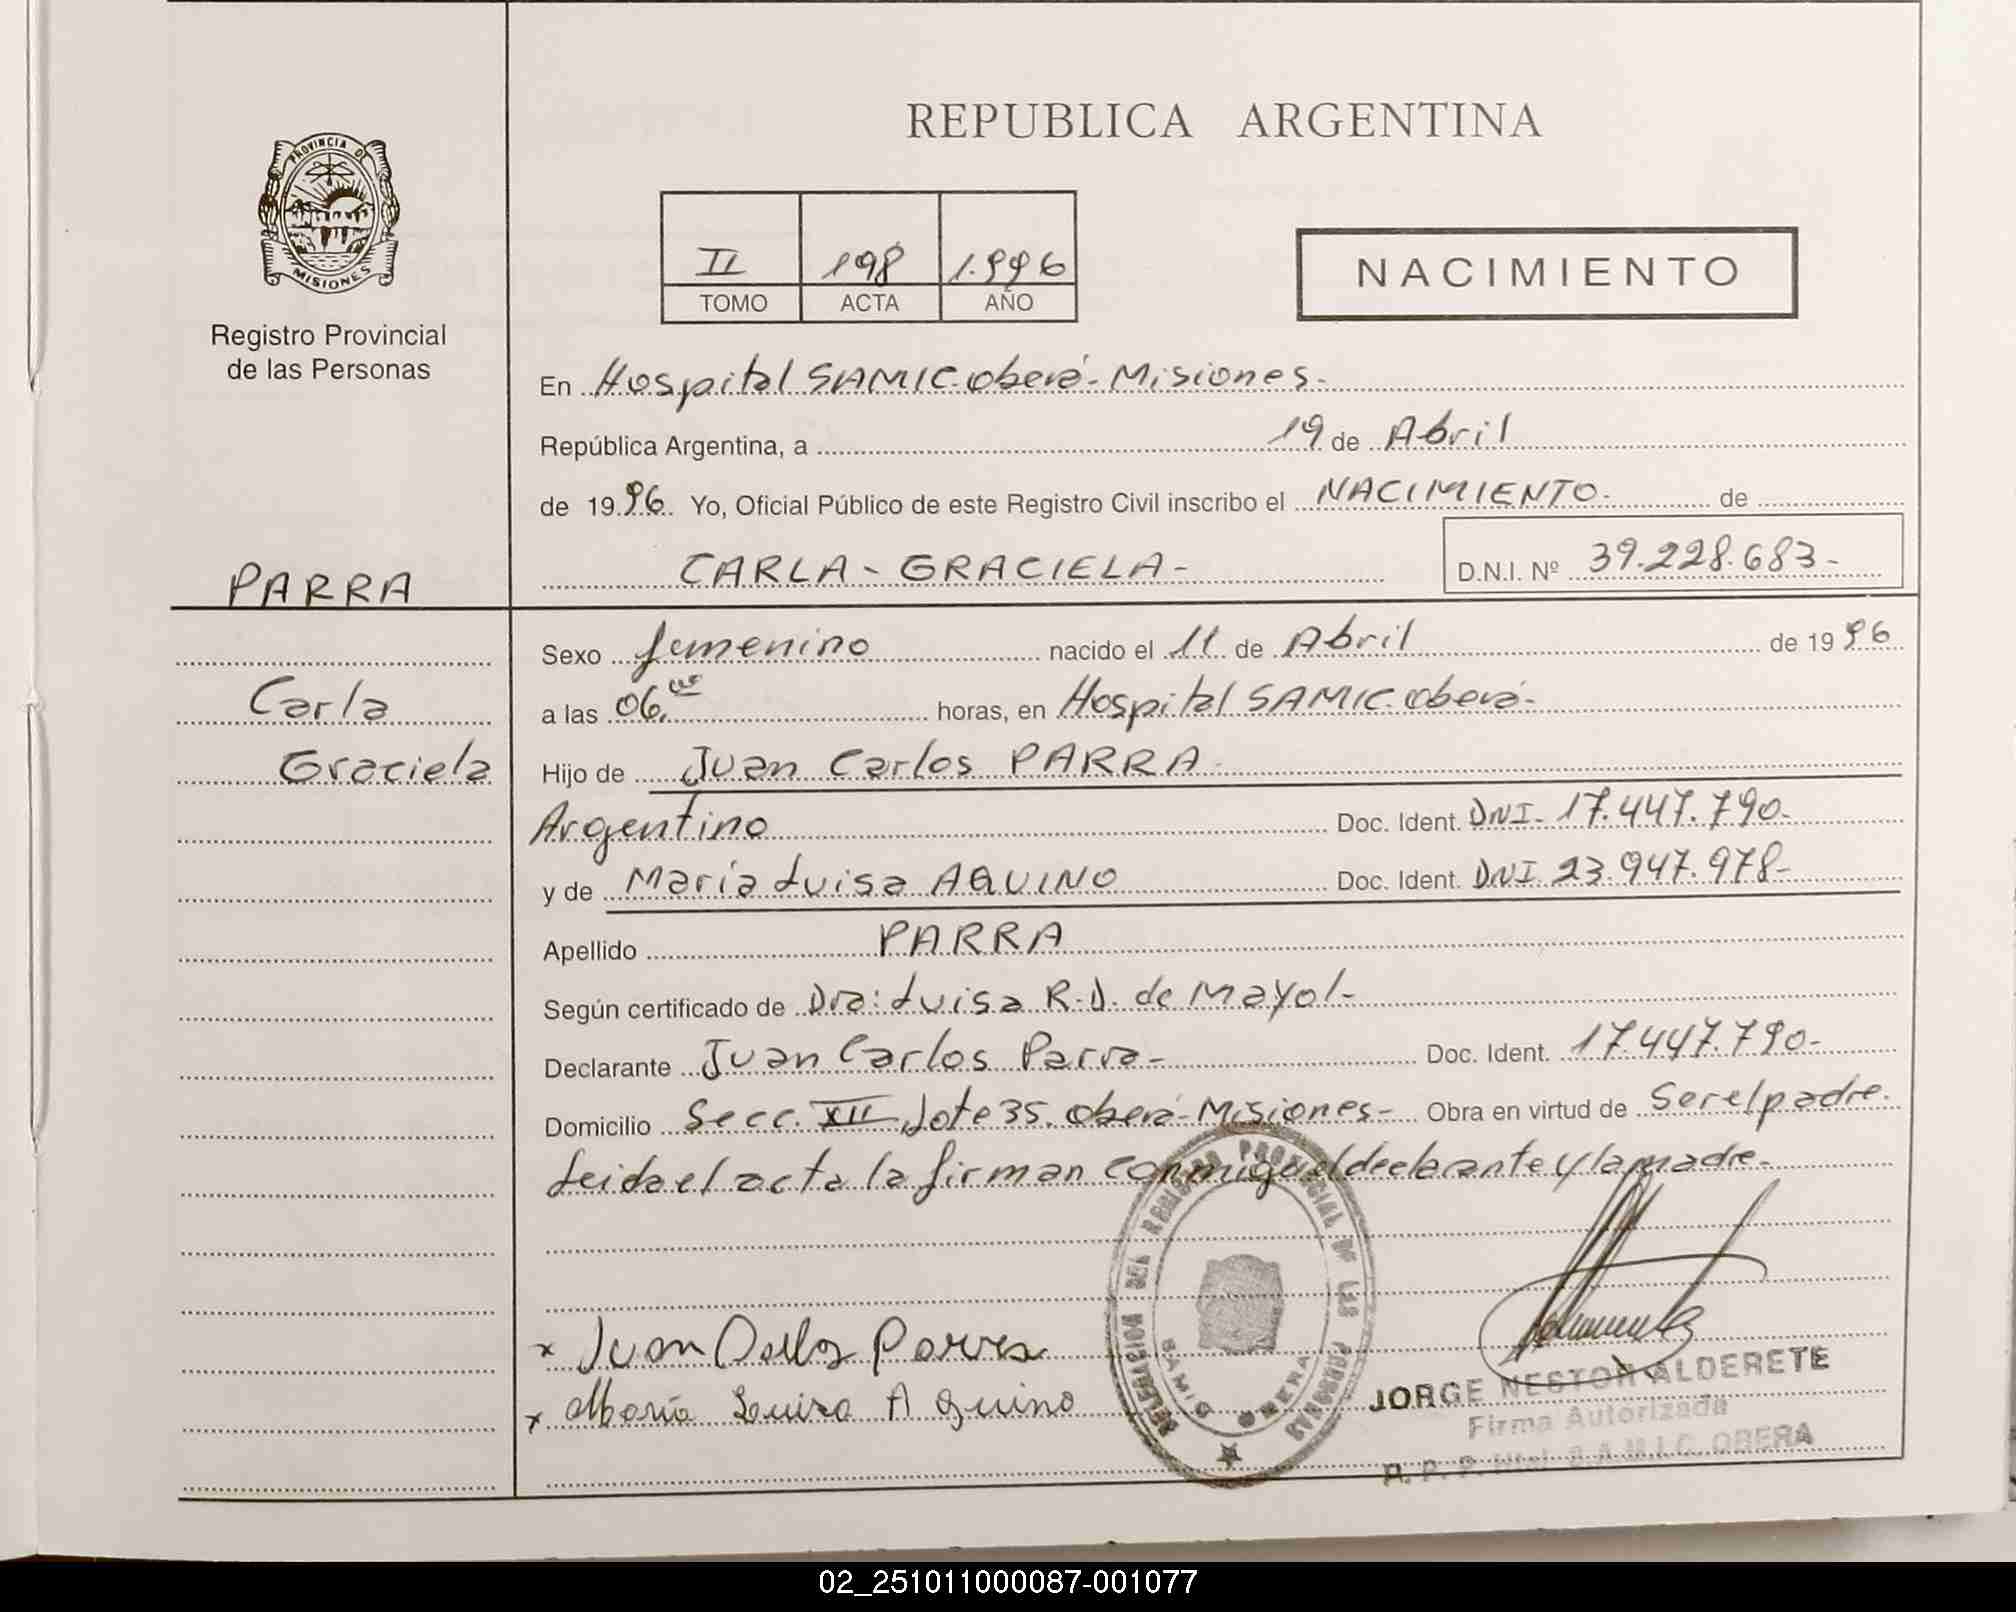 REPUBLICA ARGENTINA
PROVINCIA DE
MISIONES
Registro Provincial
de las Personas
II 198 1.996
TOMO ACTA AÑO
NACIMIENTO
En Hospital SAMIC. Oberá - Misiones.
República Argentina, a 19 de Abril
de 1996. Yo, Oficial Público de este Registro Civil inscribo el NACIMIENTO. de
PARRA
CARLA - GRACIELA - D.N.I. Nº 39.228.683-
Carla
Graciela
Sexo femenino nacido el 11 de Abril de 1996
a las 06. horas, en Hospital SAMIC. Oberá-
Hijo de Juan Carlos PARRA
Argentino Doc. Ident. DNI- 17.447.790-
y de María Luisa AQUINO Doc. Ident. DNI 23.947.978-
Apellido PARRA
Según certificado de Dra: Luisa R.D. de Mayol-
Declarante Juan Carlos Parra- Doc. Ident. 17.447.790-
Domicilio Secc. XII Lote 35. Oberá-Misiones- Obra en virtud de Ser el padre.
Leida el acta la firman conmigo el declarante y la madre.
x Juan Carlos Parra
x María Luisa Aquino
DELEGACION DEL REGISTRO PROVINCIAL DE LAS PERSONAS
SAMIC OBERA
JORGE NESTOR ALDERETE
Firma Autorizada
R. P. P. Htal. S.A.M.I.C. OBERA
02_251011000087-001077